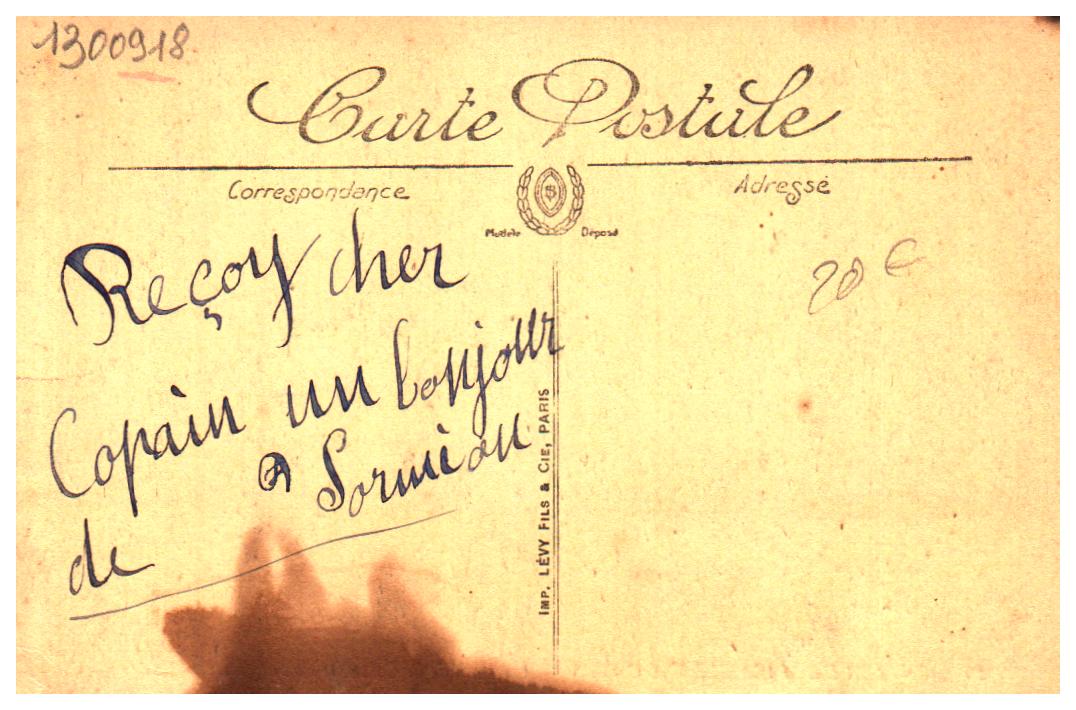 1300918
Carte Postale
Correspondance
Adresse
Modèle Déposé
Reçoy cher
20 €
Copain un bonjour
de
Sormiou
IMP. LÉVY FILS & CIE, PARIS